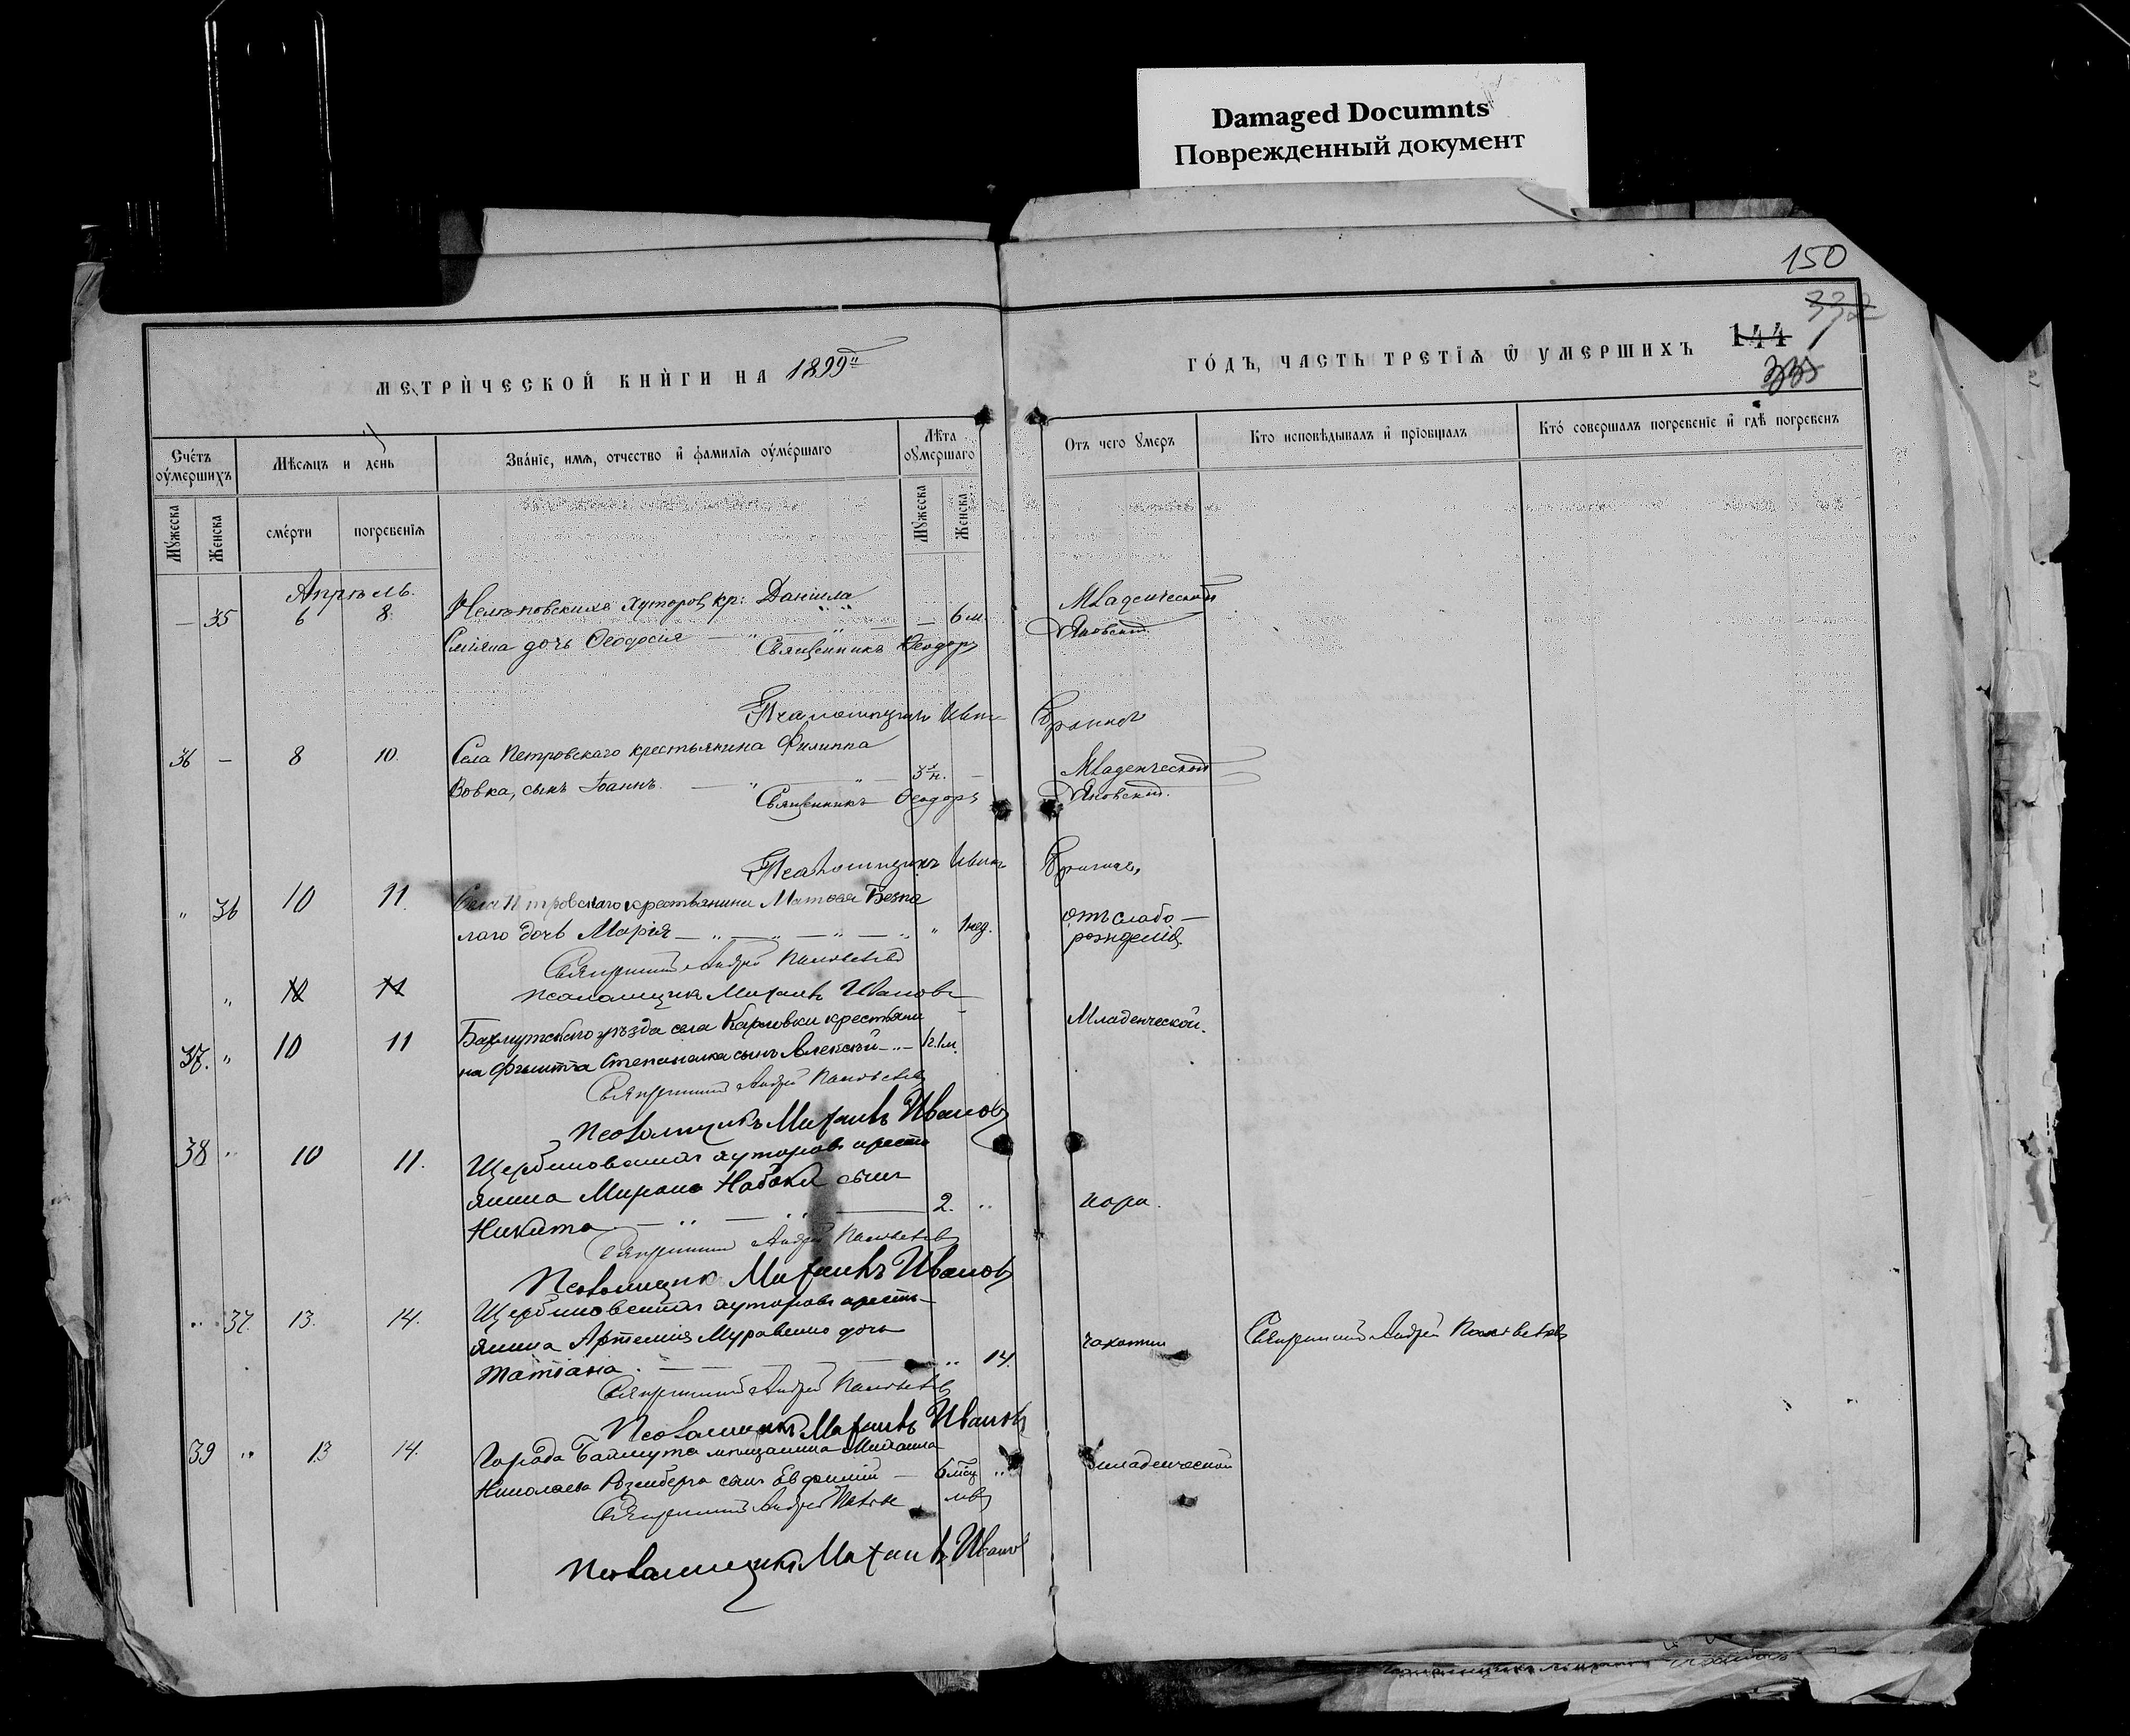 Damaged Documnts
Поврежденный документ
150
332
144
335
МЕТРИЧЕСКОЙ КНИГИ НА 1899й
ГОДЪ, ЧАСТЬ ТРЕТІѦ Ѿ УМЕРШИХЪ
Счетъ оумершихъ
Мѣсяцъ и день
Званіе, имя, отчество и фамилія оумершаго
Лѣта оумершаго
Отъ чего умеръ
Кто исповѣдывалъ и пріобщалъ
Кто совершалъ погребеніе и гдѣ погребенъ
Мужеска
Женска
смерти
погребенія
Мужеска
Женска
Апрѣль.
— 35 6 8 хуторовъ кр: Даніила — 6 м. Младенческой
дочь Ѳеодосія — Священникъ Ѳеодоръ Яновскій.
Псаломщикъ Иванъ
36 — 8 10. Села Петровскаго крестьянина Филиппа
Вовка, сынъ Іоаннъ. — 3 н. — Младенческой
Священникъ Ѳеодоръ Яновскій.
Псаломщикъ Иванъ
" 36 10 11. Села Петровскаго крестьянина Матѳея Безпа
лаго дочь Марія — " — " — " — " " 1 нед. отъ слабо—
рожденія.
Священникъ Андрей
" 10 11 Псаломщикъ Михаилъ Ивановъ
Бахмутскаго уѣзда села Карловки крестьяни
37. " 10 11 на Филиппа Степаненка сынъ Алексѣй — " — 1 г. 1 м. Младенческой.
Священникъ Андрей
Псаломщикъ Михаилъ Ивановъ
38 " 10 11. Щербиновскихъ хуторовъ кресть
янина Мирона Набока сынъ
Никита — " — " — 2. " кори.
Священникъ Андрей
Псаломщикъ Михаилъ Ивановъ
" 37. 13. 14. Щербиновскихъ хуторовъ кресть—
янина Артемія Муравенко дочь
Татіана. — " 14. чахотки Священникъ Андрей
Священникъ Андрей
Псаломщикъ Михаилъ Ивановъ
39 " 13 14. Города Бахмута мѣщанина Михаила
Николаева Розенберга сынъ Евфимій — 6 мѣс " младенческой
Священникъ Андрей
Псаломщикъ Михаилъ Ивановъ